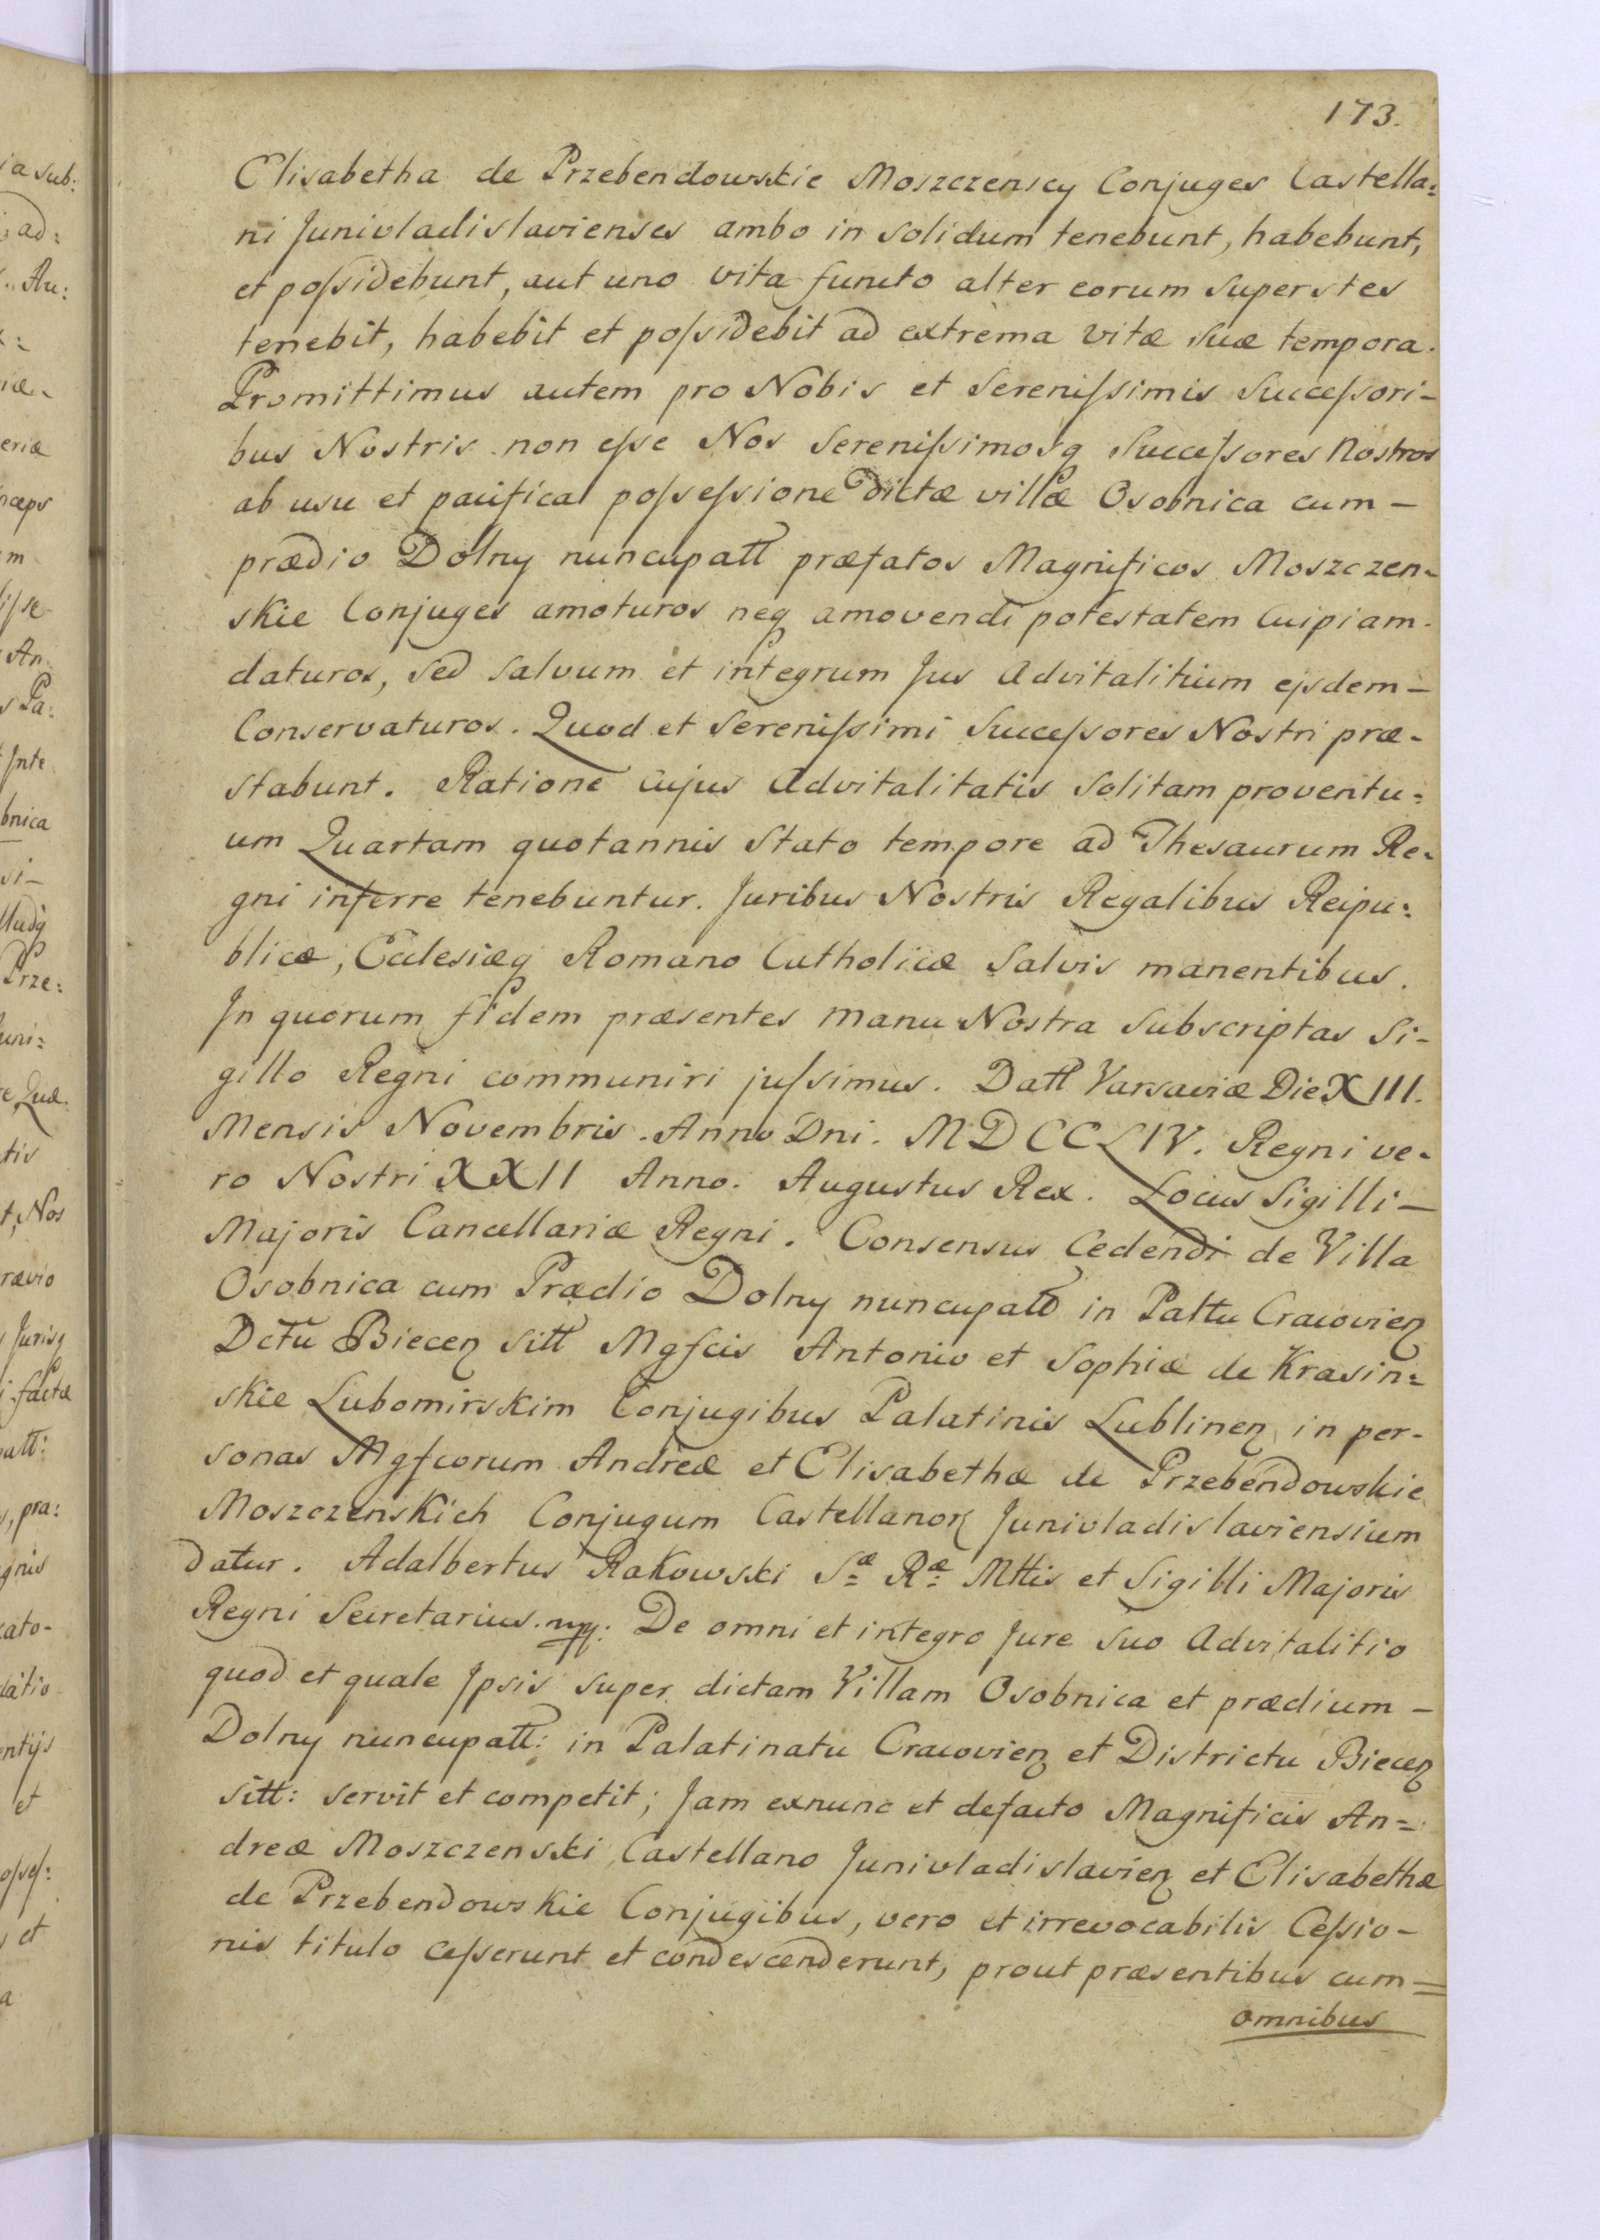 173.
Elisabetha de Przebendowskie Moszczenscy Conjuges Castella=
ni Junivladislavienses ambo in solidum tenebunt, habebunt,
et possidebunt, aut uno vita functo alter eorum superstes
tenebit, habebit et possidebit ad extrema vitæ suæ tempora.
Promittimus autem pro Nobis et Serenissimis Successori-
bus Nostris non esse Nos Serenissimosq Successores Nostros
ab usu et pacifica possessione dictæ villæ Osobnica cum -
prædio Dolny nuncupatt præfatos Magnificos Moszczen=
skie Conjuges amoturos neq amovendi potestatem Cuipiam
daturos, sed salvum et integrum Jus Advitalitium ejsdem -
Conservaturos. Quod et Serenissimi Successores Nostri præ-
stabunt. Ratione cujus Advitalitatis solitam proventu=
um Quartam quotannis stato tempore ad Thesaurum Re=
gni inferre tenebuntur. Juribus Nostris Regalibus Reipu=
blicæ, Ecclesiæq Romano Catholicæ salvis manentibus.
In quorum fidem præsentes manu Nostra subscriptas Si-
gillo Regni communiri jussimus. Datt Varsaviæ Die XIII.
Mensis Novembris. Anno Dni. MDCCLIV. Regni ve=
ro Nostri XXII Anno. Augustus Rex. Locus Sigilli -
Majoris Cancellariæ Regni. Consensus Cedendi de Villa
Osobnica cum Prædio Dolny nuncupatt in Pattu Cracovien
Dctu Biecen sitt Mgfcis Antonio et Sophiæ de Krasin=
skie Lubomirskim Conjugibus Palatinis Lublinen in per-
sonas Mgfcorum Andreæ et Elisabethæ de Przebendowskie
Moszczenskich Conjugum Castellanor Junivladislaviensium
datur. Adalbertus Rakowski Sæ Ræ Mttis et Sigilli Majoris
Regni Secretarius. mp: De omni et integro Jure suo Advitalitio
quod et quale Ipsis super dictam Villam Osobnica et prædium -
Dolny nuncupatt: in Palatinatu Cracovien et Districtu Biecen
sitt: servit et competit; Jam exnunc et defacto Magnificis An=
dreæ Moszczenski Castellano Junivladislavien et Elisabethæ
de Przebendowskie Conjugibus, vero et irrevocabilis Cessio-
nis titulo cesserunt et condescenderunt, prout præsentibus cum=
omnibus